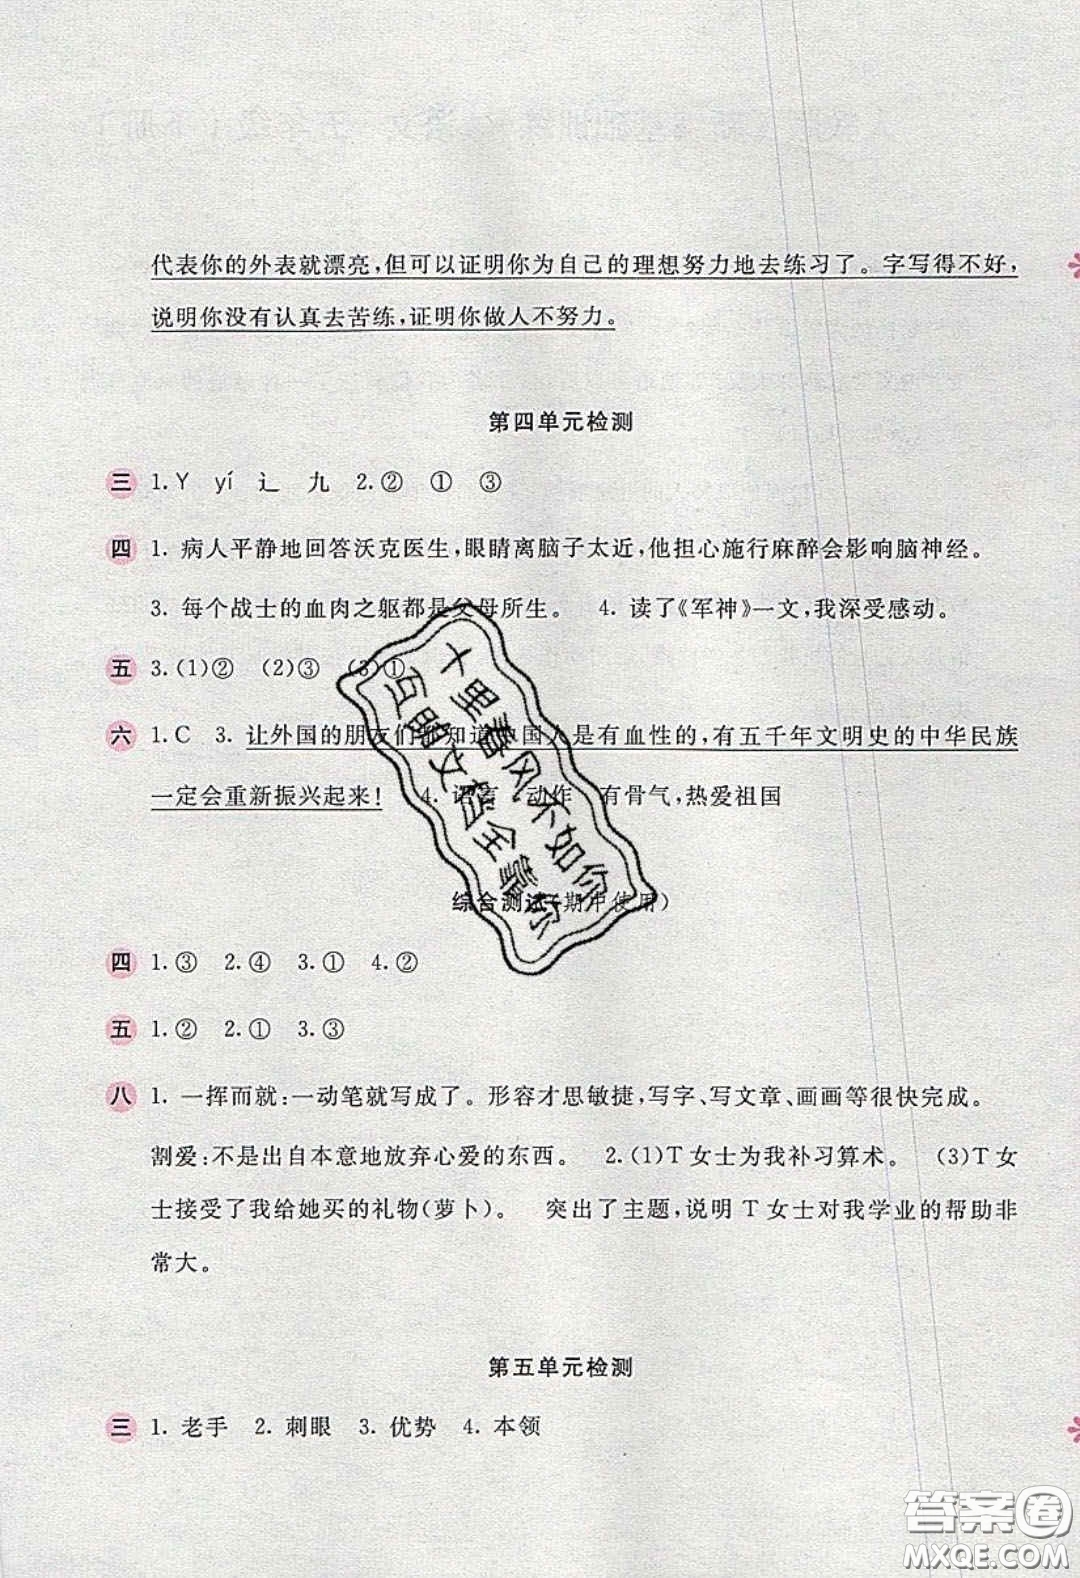 代表你的外表就漂亮，但可以证明你为自己的理想努力地去练习了。字写得不好，
说明你没有认真去苦练，证明你做人不努力。
第四单元检测
三 1. Y yí 辶 九 2. ② ① ③
四 1. 病人平静地回答沃克医生，眼睛离脑子太近，他担心施行麻醉会影响脑神经。
3. 每个战士的血肉之躯都是父母所生。 4. 读了《军神》一文，我深受感动。
五 3. (1)② (2)③ (3)①
六 1. C 3. 让外国的朋友们 知道 国人是有血性的，有五千年文明史的中华民族
一定会重新振兴起来！ 4. 语言 动作 有骨气，热爱祖国
综合测试(期中使用)
四 1. ③ 2. ④ 3. ① 4. ②
五 1. ② 2. ① 3. ③
八 1. 一挥而就：一动笔就写成了。形容才思敏捷，写字、写文章、画画等很快完成。
割爱：不是出自本意地放弃心爱的东西。 2. (1)T女士为我补习算术。 (3)T女
士接受了我给她买的礼物(萝卜)。 突出了主题，说明T女士对我学业的帮助非
常大。
第五单元检测
三 1. 老手 2. 刺眼 3. 优势 4. 本领
十里春风不如你
互助文档全靠你
答案圈
MXQE.COM